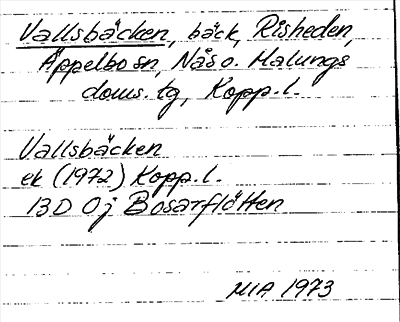 Vallsbäcken, bäck, Risheden,
Äppelbo sn, Nås o. Malungs
doms. tg, Kopp. l.
Vallsbäcken
ek (1972) Kopp. l.
13D 0j Bosarflötten
MIA 1973